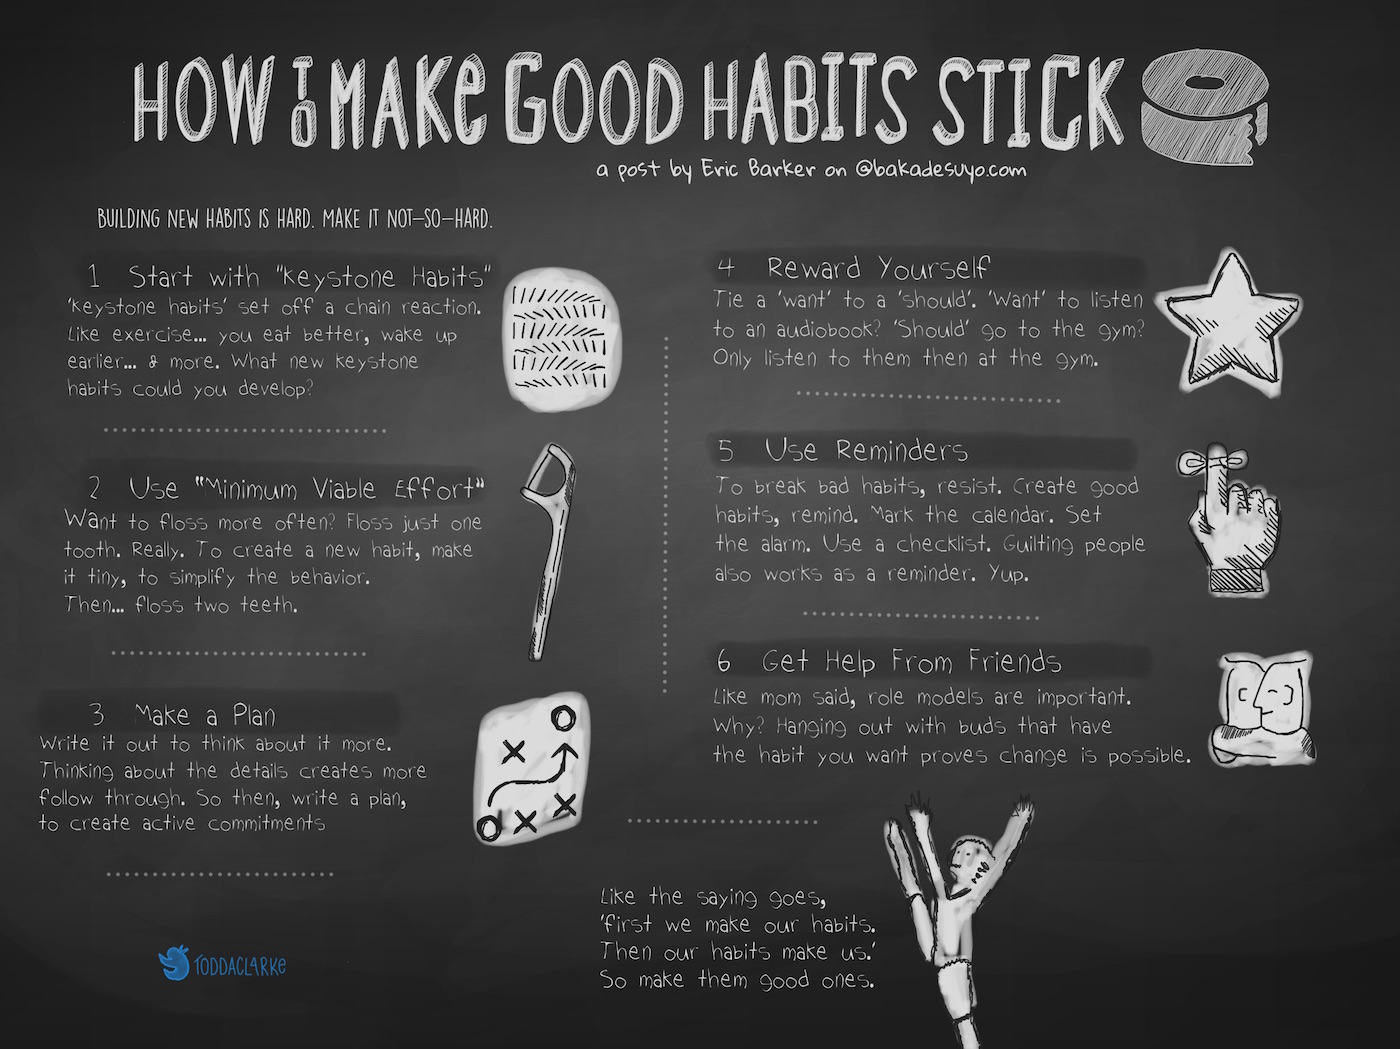 HOW TO MAKE GOOD HABITS STICK
a post by Eric Barker on @bakadesuyo.com
BUILDING NEW HABITS IS HARD. MAKE IT NOT-SO-HARD.
1 Start with "Keystone Habits"
'Keystone habits' set off a chain reaction.
Like exercise... you eat better, wake up
earlier... & more. What new keystone
habits could you develop?
2 Use "Minimum Viable Effort"
Want to floss more often? Floss just one
tooth. Really. To create a new habit, make
it tiny, to simplify the behavior.
Then... floss two teeth.
3 Make a Plan
Write it out to think about it more.
Thinking about the details creates more
follow through. So then, write a plan,
to create active commitments
4 Reward Yourself
Tie a 'want' to a 'should'. 'Want' to listen
to an audiobook? 'Should' go to the gym?
Only listen to them then at the gym.
5 Use Reminders
To break bad habits, resist. Create good
habits, remind. Mark the calendar. Set
the alarm. Use a checklist. Guilting people
also works as a reminder. Yup.
6 Get Help From Friends
Like mom said, role models are important.
Why? Hanging out with buds that have
the habit you want proves change is possible.
Like the saying goes,
'first we make our habits.
Then our habits make us.'
So make them good ones.
TODDACLARKE